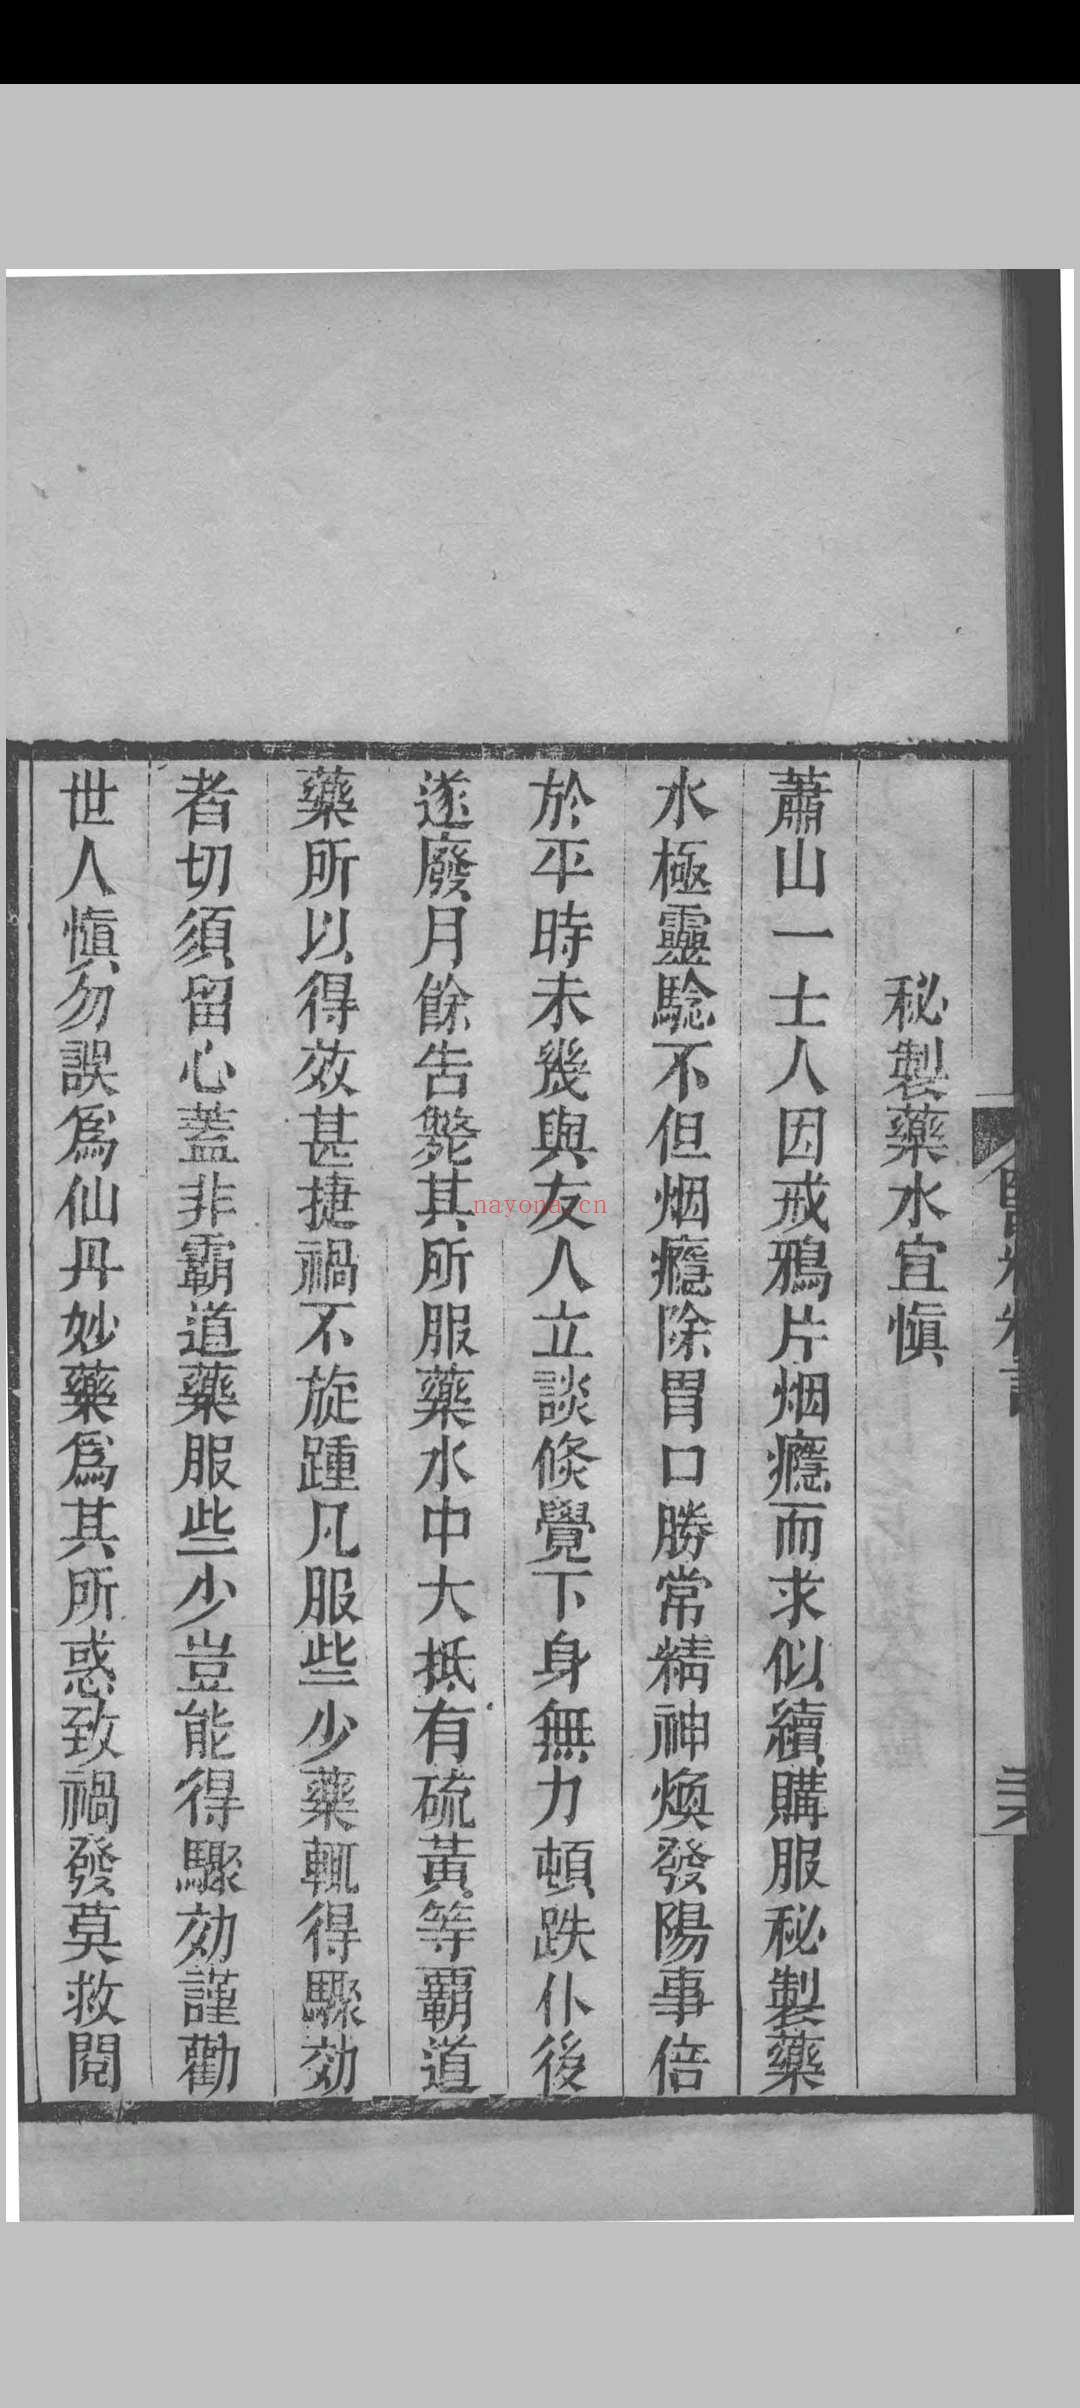 秘製藥水宜愼
蕭山一士人因戒鴉片烟癮而求似續購服秘製藥
水極靈騐不但烟癮除胃口勝常精神煥發陽事倍
於平時未幾與友人立談倐覺下身無力頓跌仆後
遂廢月餘告斃其所服藥水中大抵有硫黃等霸道
藥所以得效甚捷禍不旋踵凡服些少藥輒得驟効
者切須留心蓋非霸道藥服些少豈能得驟効謹勸
世人愼勿誤爲仙丹妙藥爲其所惑致禍發莫救閱
nayona.cn